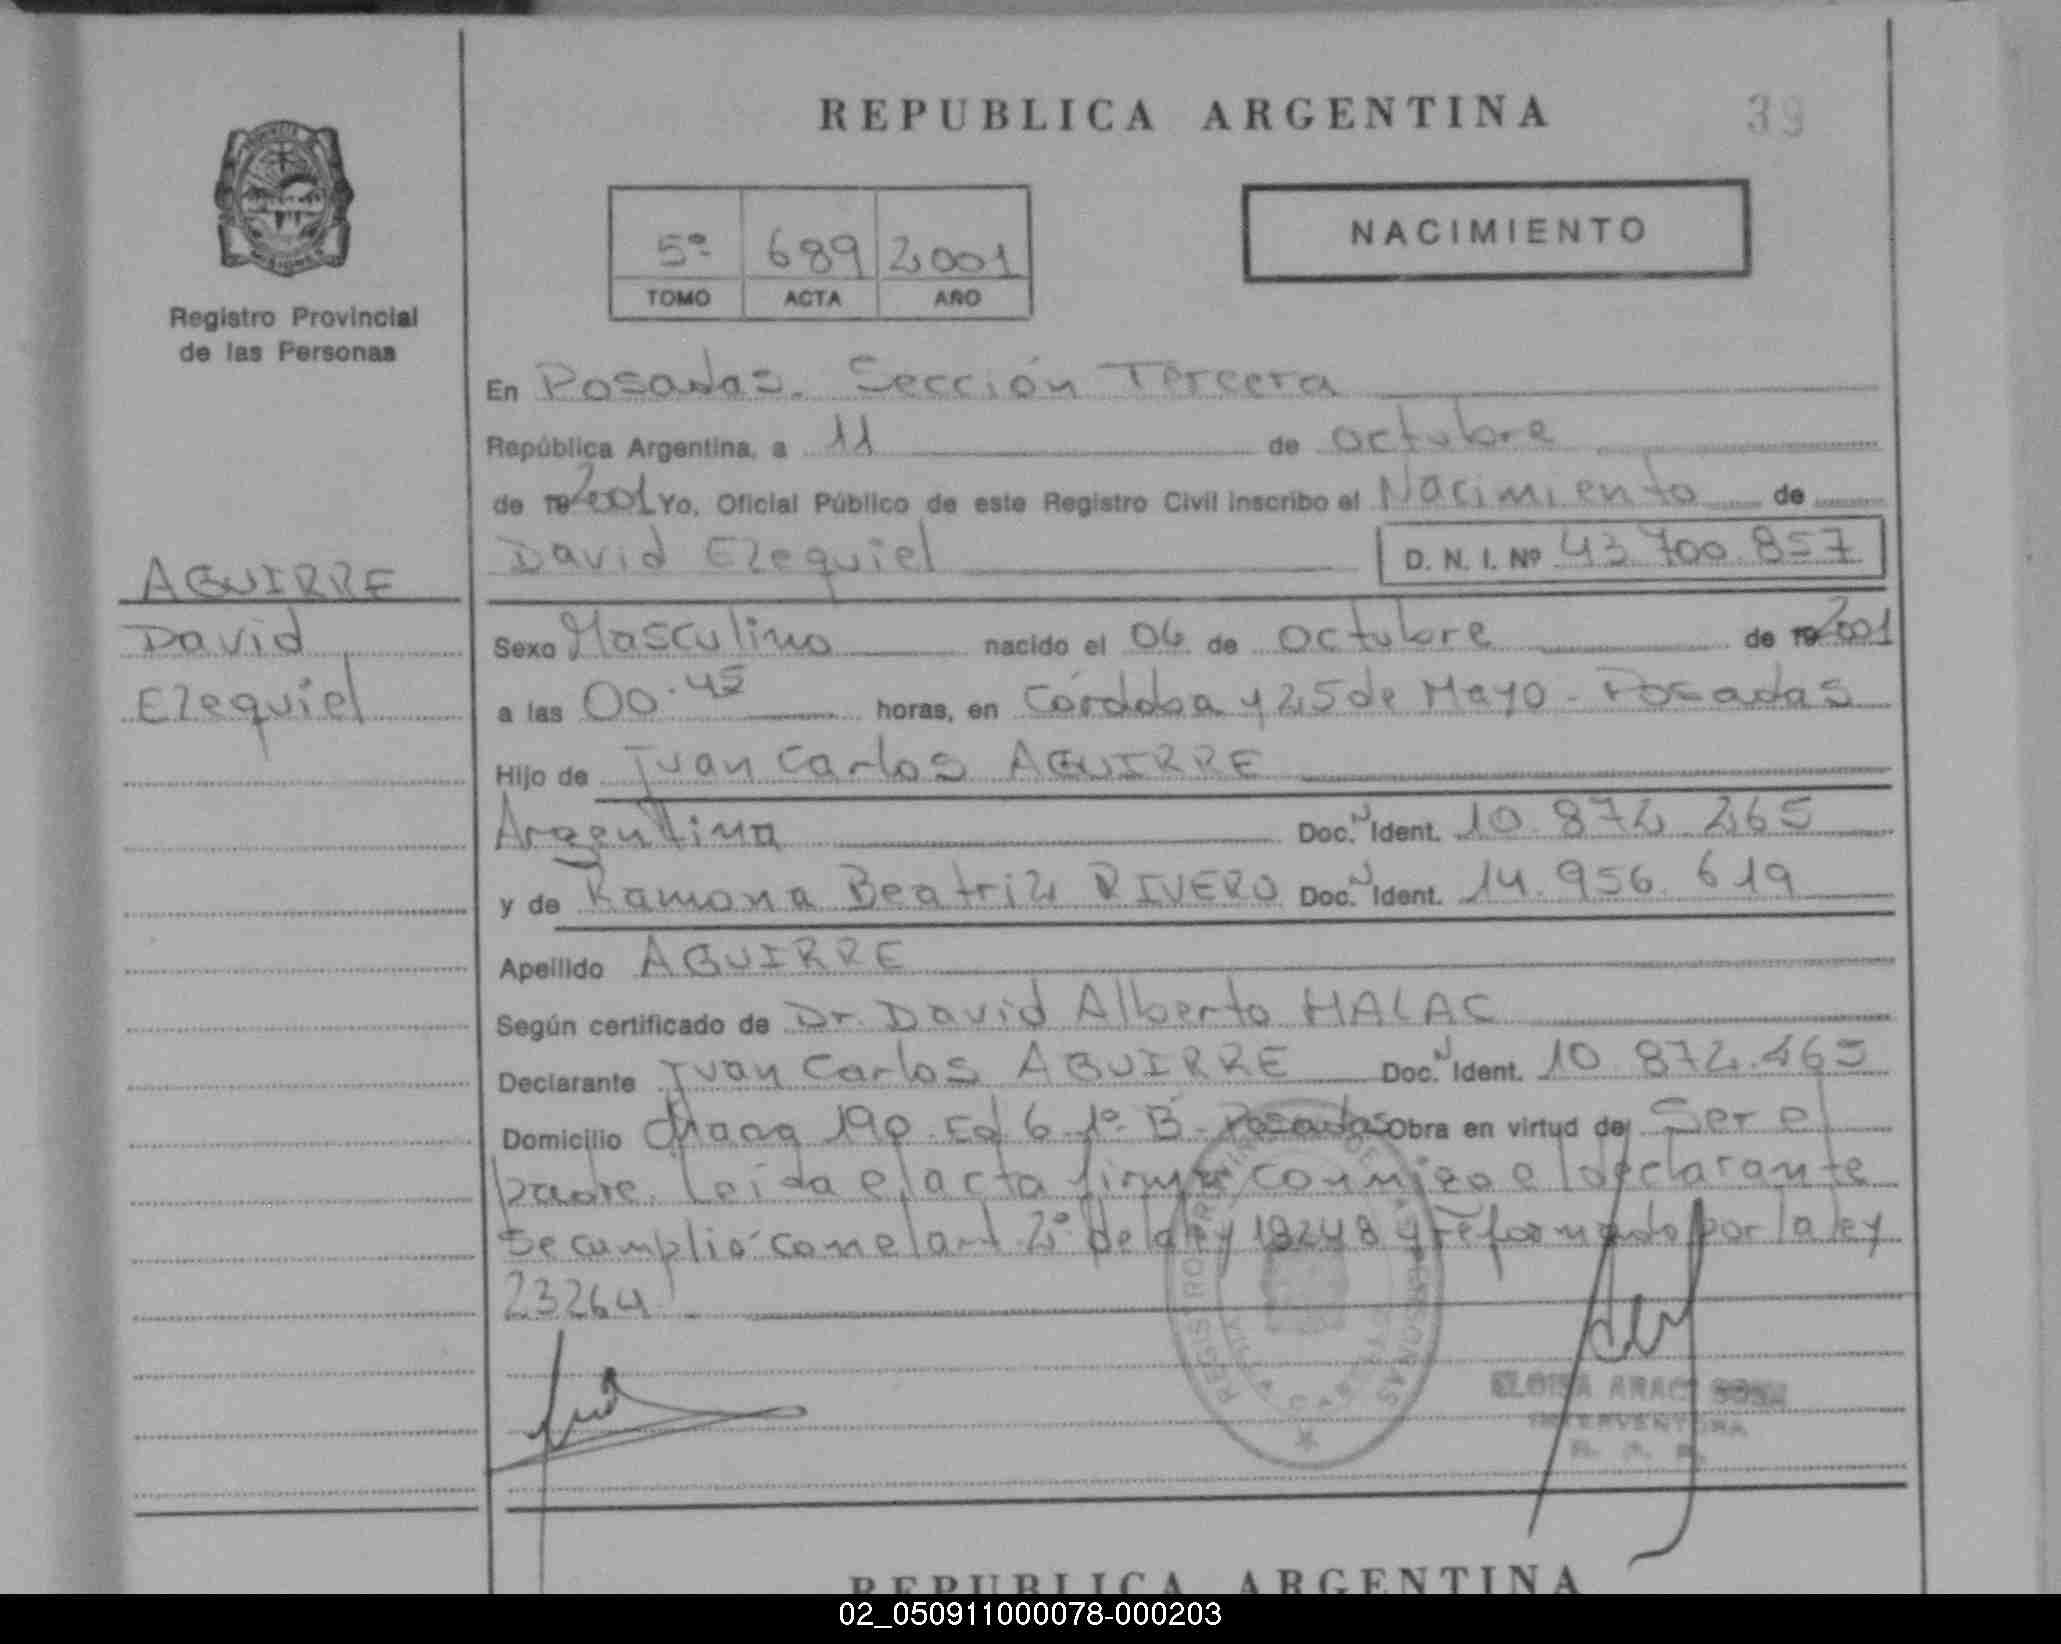 REPUBLICA ARGENTINA
39
Registro Provincial
de las Personas
5º 689 2001
TOMO ACTA AÑO
NACIMIENTO
En Posadas. Sección Tercera
República Argentina, a 11 de octubre
de 19 2001 Yo, Oficial Público de este Registro Civil inscribo el Nacimiento de
David Ezequiel D. N. I. Nº 43.700.857
AGUIRRE
David
Ezequiel
Sexo Masculino nacido el 06 de octubre de 19 2001
a las 00.45 horas, en Córdoba y 25 de Mayo - Posadas
Hijo de Juan Carlos AGUIRRE
Argentina Doc. N Ident. 10.872.265
y de Ramona Beatriz RIVERO Doc. N Ident. 14.956.619
Apellido AGUIRRE
Según certificado de Dr. David Alberto HALAC
Declarante Juan Carlos AGUIRRE Doc. N Ident. 10.872.265
Domicilio 190 Ed 6 1º B - Posadas Obra en virtud de Ser el
padre. Leida el acta firma conmigo el declarante
Se cumplió con el art 2º de la ley 18248 y reformado por la ley
23264
REGISTRO PROVINCIAL DE LAS PERSONAS
ELOISA SOSA
INTERVENTORA
REPUBLICA ARGENTINA
02_050911000078-000203